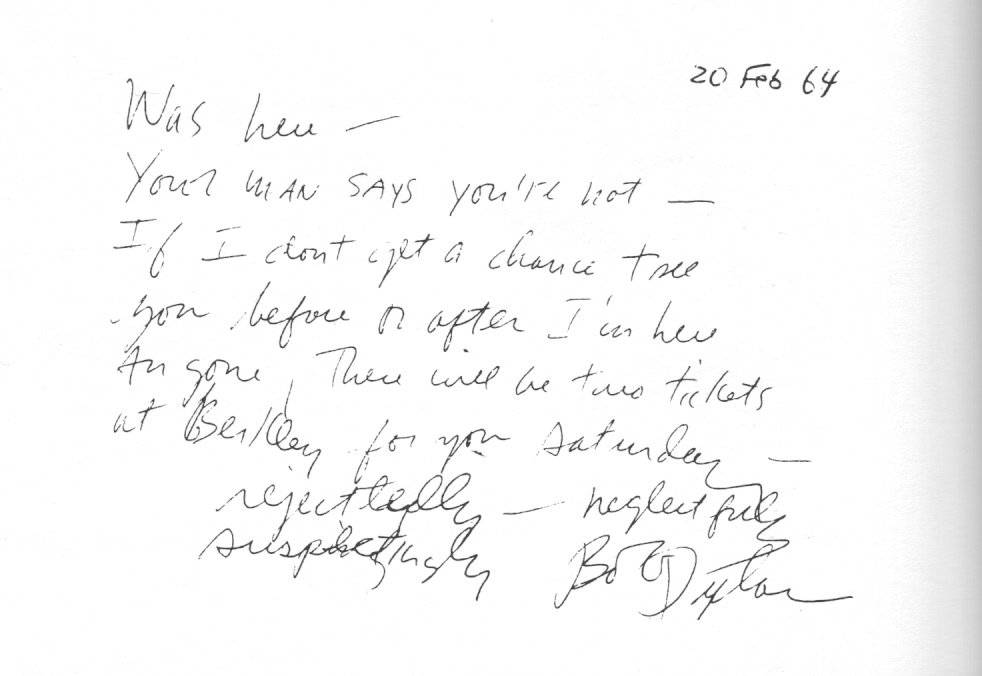 20 Feb 64
Was here —
Your man says you're not —
If I dont get a chance t see
you before or after I'm here
An gone, There will be two tickets
at Berkley for you saturday —
rejecttedly — neglectfully
suspiketingly Bob Dylan